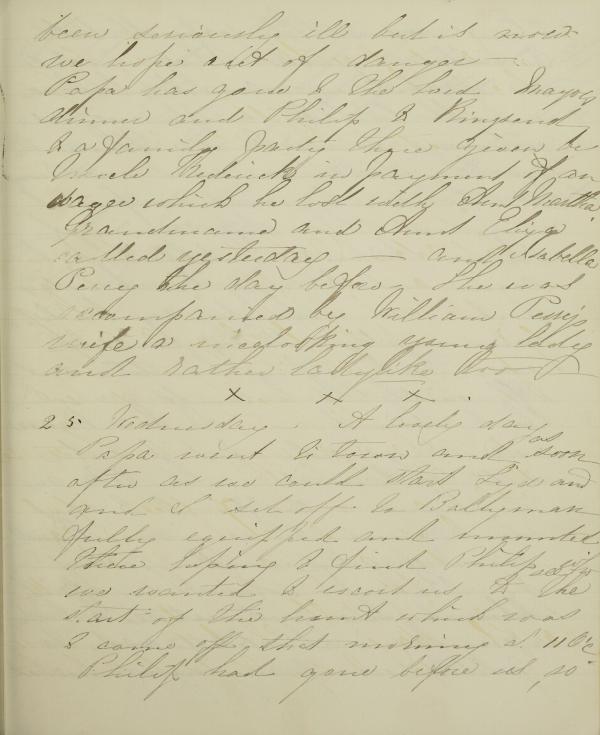 been seriously ill but is now
we hope out of danger —
Papa has gone to the Lord Mayors
dinner and Philip to Ringsend
to a family party there given by
Uncle Frederick in payment of an
wager which he lost with Aunt Martha
Grandmama and Aunt Eliza
called yesterday — and Isabella
Penny the day before. She was
accompanied by William Penny's
wife a nice looking young lady
and rather ladylike too —
x x x .
25 Wednesday. A lovely day
Papa went to town and as soon
after as we could start and
and I set off to Ballyman
fully equipped and mounted
there hoping to find Philip
we wanted to escort us to the
start of the hunt which was
to come off that morning at 11 O'c
Philip had gone before us, so